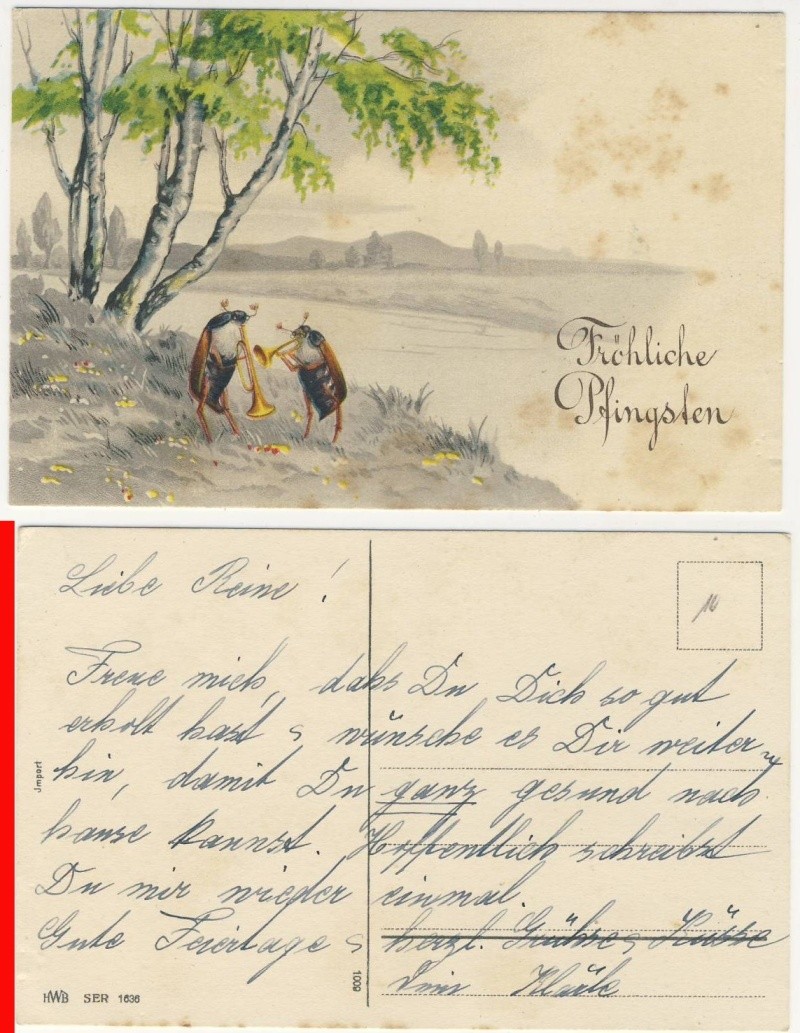 Fröhliche
Pfingsten
Liebe Reine!
Freue mich, dahs Du Dich so gut
erholt hast & wünsche es Dir weiter-
hin, damit Du ganz gesund nach
hause kannst. Hoffentlich schreibst
Du mir wieder einmal.
Gute Feiertage & herzl. Grühse & Küsse
Dein
Jmport
1009
HWB SER 1636